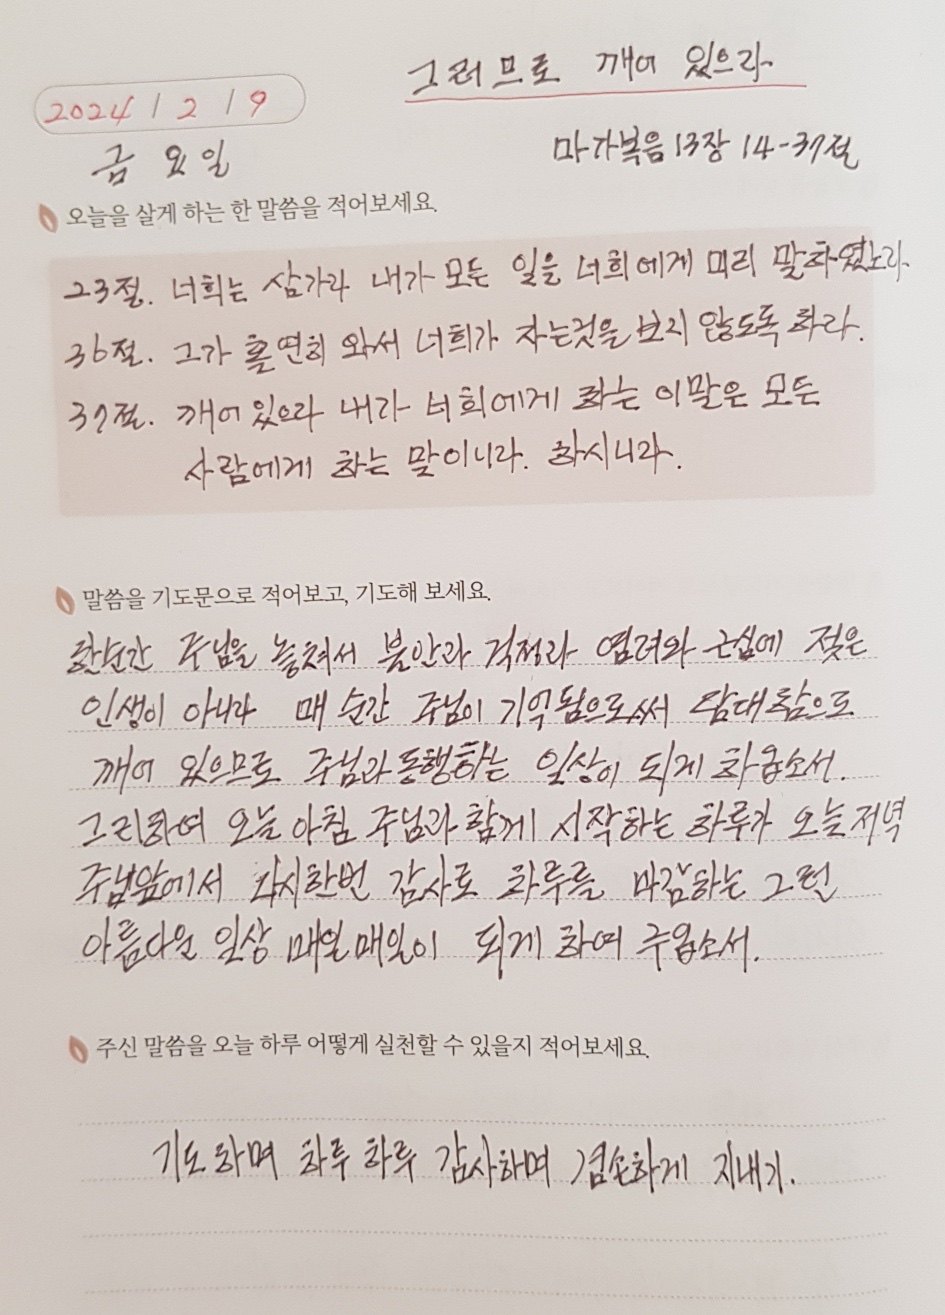 그러므로 깨어 있으라.
2024 / 2 / 9
금요일
마가복음 13장 14-37절
오늘을 살게 하는 한 말씀을 적어보세요.
23절. 너희는 삼가라 내가 모든 일을 너희에게 미리 말하였노라.
36절. 그가 홀연히 와서 너희가 자는것을 보지 않도록 하라.
37절. 깨어있으라 내가 너희에게 하는 이말은 모든
사람에게 하는 말이니라. 하시니라.
말씀을 기도문으로 적어보고, 기도해 보세요.
한순간 주님을 놓쳐서 불안과 걱정과 염려와 근심에 젖은
인생이 아니라 매 순간 주님이 기억됨으로써 담대함으로
깨어 있으므로 주님과 동행하는 일상이 되게 하옵소서.
그리하여 오늘 아침 주님과 함께 시작하는 하루가 오늘 저녁
주님앞에서 다시한번 감사로 하루를 마감하는 그런
아름다운 일상 매일매일이 되게 하여 주옵소서.
주신 말씀을 오늘 하루 어떻게 실천할 수 있을지 적어보세요.
기도하며 하루하루 감사하며 겸손하게 지내기.